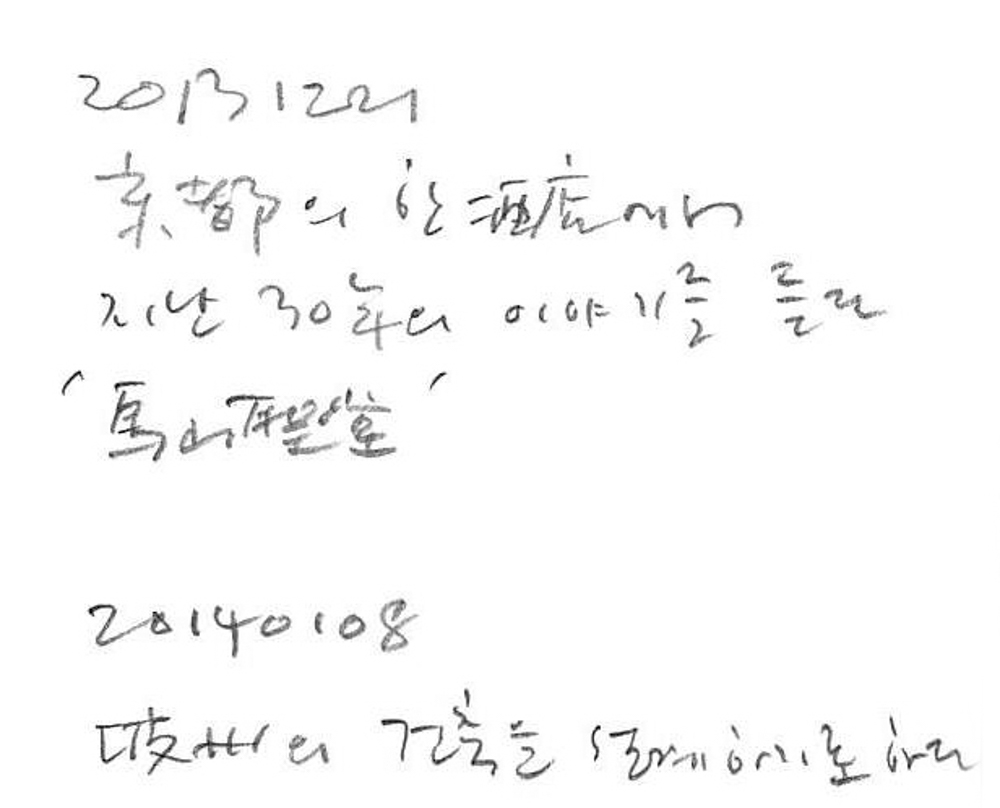 20131221
京都의 한 酒店에서
지난 30年의 이야기를 듣다
'馬山 堂'
20140108
坡州의 건축을 설계하기로 하다